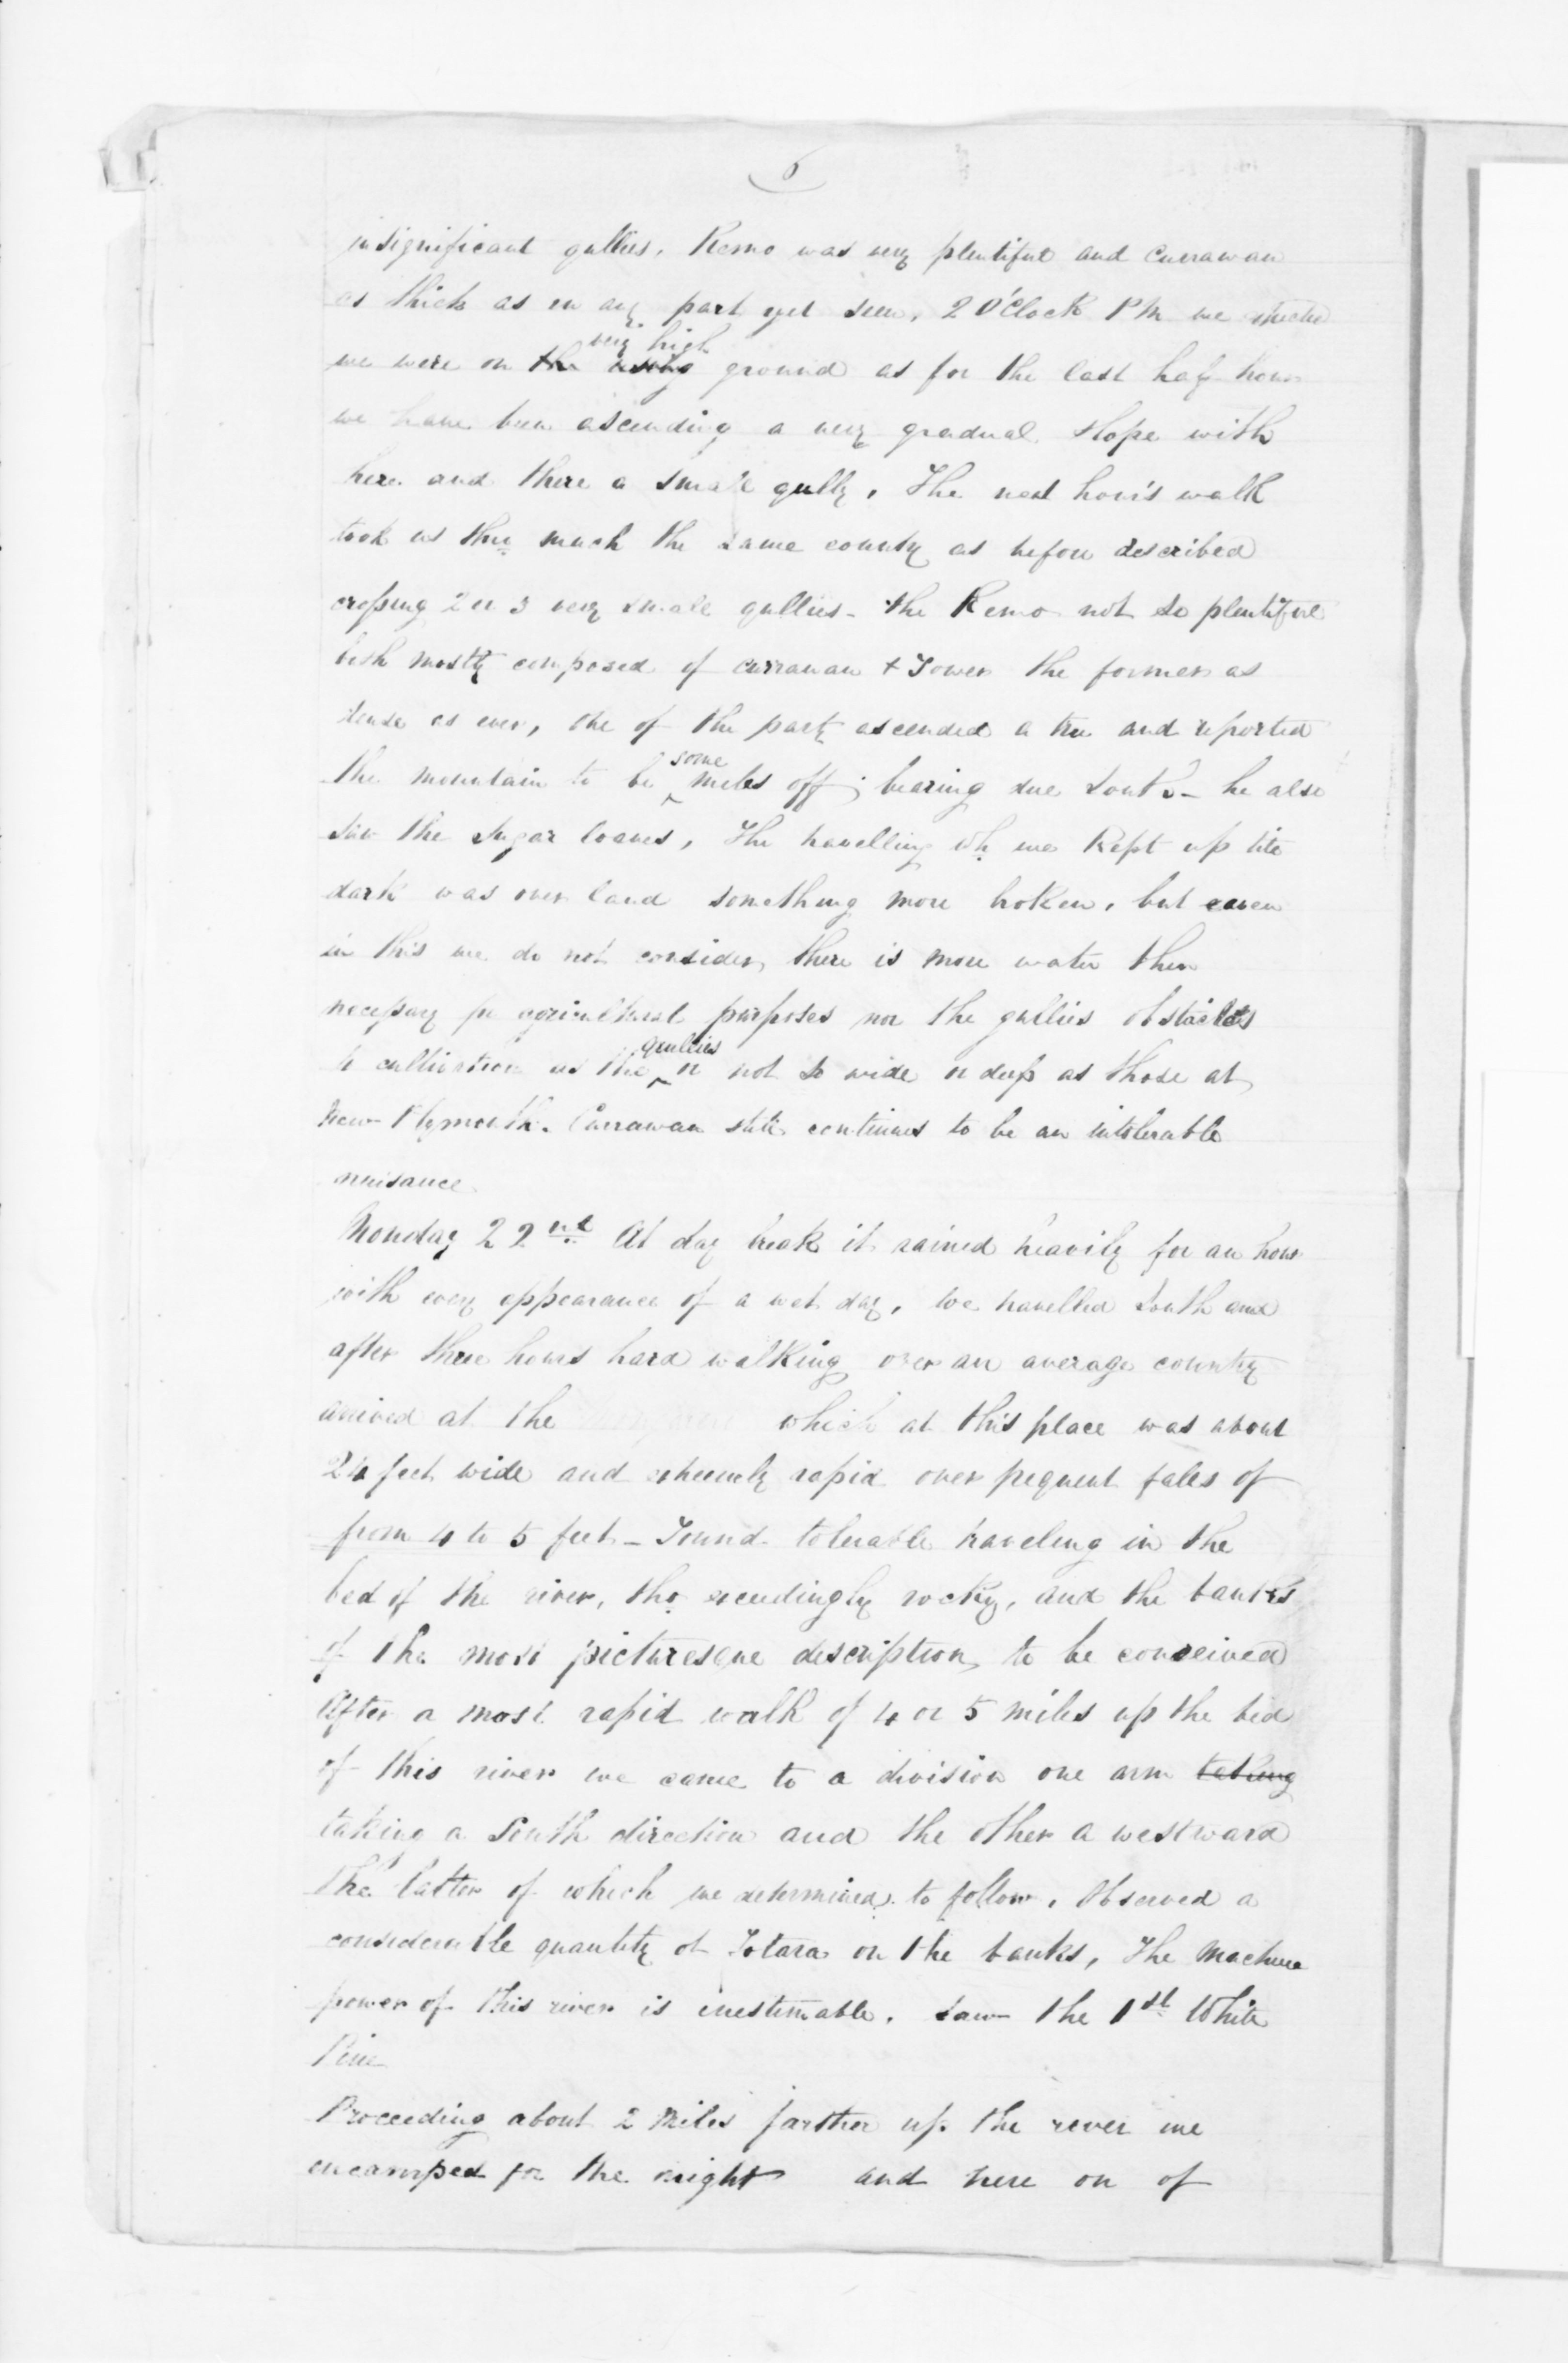 6
insignificant gullies. Remo was very plentiful and Currawau
as thick as in any part yet seen. 2 O'Clock PM we
very high
we were on ground as for the last half hour
we have been ascending a very gradual slope with
here and there a small gully. The next hour's walk
took us thro much the same country as before described
crossing 2 or 3 very small gullies - the Remo not so plentiful
bush mostly composed of currawau + Tower the former as
dense as ever, one of the party ascended a tree and reported
some
the mountain to be ^ miles off; bearing due South - he also
saw the Sugar loaves, The travelling wh we kept up till
dark was over land something more broken, but even
in this we do not consider there is more water then
necessary for agricultural purposes nor the gullies obstacles
gullies
to cultivation as the ^ not so wide or deep as those at
New Plymouth. Currawau still continues to be an intolerable
nuisance
Monday 22nd At day break it rained heavily for an hour
with every appearance of a wet day, we travelled South and
after three hours hard walking over an average country
arrived at the which at this place was about
24 feet wide and extremely rapid over frequent falls of
from 4 to 5 feet - Found tolerable traveling in the
bed of the river, tho exceedingly rocky, and the banks
of the most picturesque description to be conceived
After a most rapid walk of 4 or 5 miles up the bed
of this river we came to a division one arm taking
taking a South direction and the other a westward
the latter of which we determined to follow. Observed a
considerable quantity of Totara on the banks, The machine
power of this river is inestimable. Saw the 1st White
Pine
Proceeding about 2 Miles farther up the river we
encamped for the night and here on of